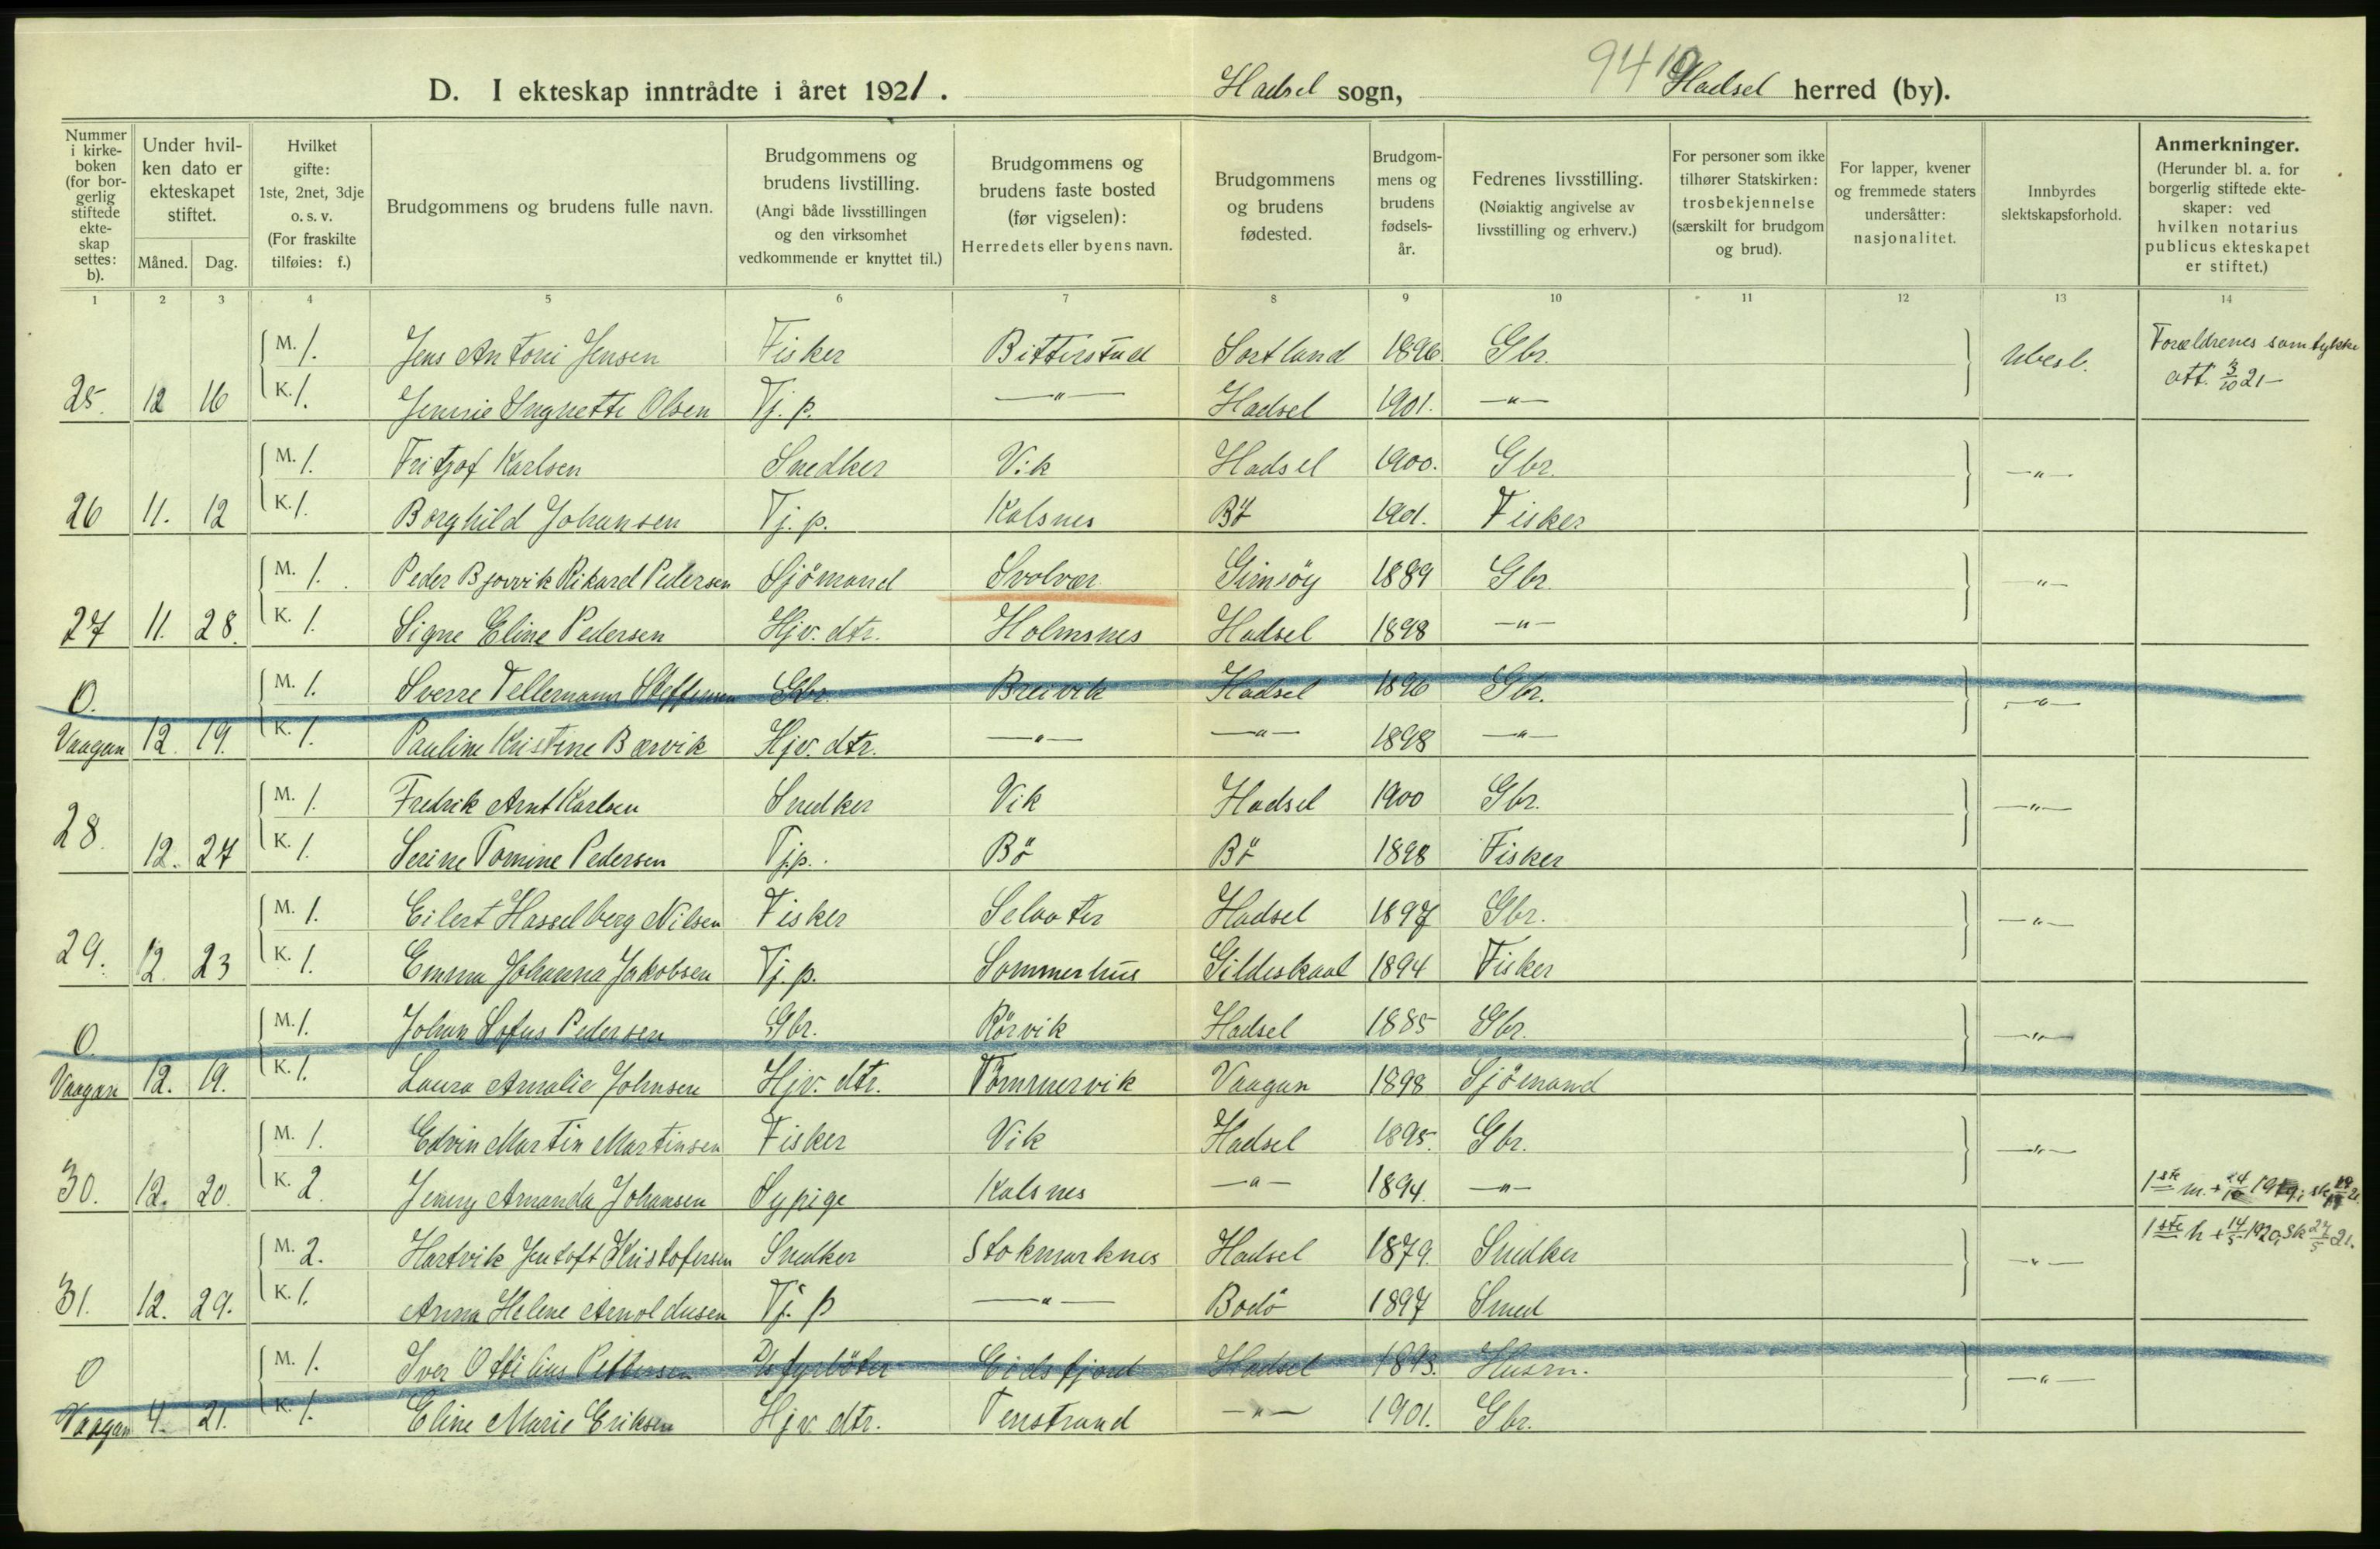 9410
D. I ekteskap inntrådte i året 1921. Hadsel sogn, Hadsel herred (by).
Nummer i kirke-boken (for bor-gerlig stiftede ekte-skap settes: b).
Under hvil-ken dato er ekteskapet stiftet.
Måned. Dag.
Hvilket gifte: 1ste, 2net, 3dje o. s. v. (For fraskilte tilføies: f.)
Brudgommens og brudens fulle navn.
Brudgommens og brudens livstilling. (Angi både livsstillingen og den virksomhet vedkommende er knyttet til.)
Brudgommens og brudens faste bosted (før vigselen): Herredets eller byens navn.
Brudgommens og brudens fødested.
Brudgom-mens og brudens fødsels-år.
Fedrenes livsstilling. (Nøiaktig angivelse av livsstilling og erhverv.)
For personer som ikke tilhører Statskirken: trosbekjennelse (særskilt for brudgom og brud).
For lapper, kvener og fremmede staters undersåtter: nasjonalitet.
Innbyrdes slektskapsforhold.
Anmerkninger. (Herunder bl. a. for borgerlig stiftede ekte-skaper: ved hvilken notarius publicus ekteskapet er stiftet.)
1 2 3 4 5 6 7 8 9 10 11 12 13 14
M. 1. Jens Antoni Jensen Fisker Bitterstad Sortland 1896 Gbr. Ubesl. Forældrenes samtykke att. 3/10 21-
25. 12 16 K. 1. Jennie Ingnette Olsen Tj. p. -"- Hadsel 1901. -"-
M. 1. Fritjof Karlsen Snedker Vik Hadsel 1900. Gbr. -"-
26 11. 12 K. 1. Borghild Johansen Tj. p. Kalsnes Bö 1901. Fisker
M. 1. Peder Rikard Pedersen Sjömand Svolvær Gimsöy 1889 Gbr. -"-
27 11. 28. K. 1. Signe Eline Pedersen Hjv. dtr. Holmsnes Hadsel 1898 -"-
0. M. 1. Sverre Tellemann Steffensen Gbr. Breivik Hadsel 1896 Gbr. -"-
Vaagan 12. 19. K. 1. Pauline Kristine Bærvik Hjv. dtr. -"- -"- 1898 -"-
M. 1. Fredrik Arnt Karlsen Snedker Vik Hadsel 1900 Gbr. -"-
28. 12. 27 K. 1. Serine Tomine Pedersen Tj.p. Bö Bö 1898 Fisker
M. 1. Eilert Hasselberg Nilsen Fisker Selaater Hadsel 1897 Gbr. -"-
29. 12. 23 K. 1. Emma Johanna Jakobsen Tj. p. Sommerhus Gildeskaal 1894 Fisker
0. M. 1. Johan Sofus Pedersen Gbr. Rörvik Hadsel 1885 Gbr. -"-
Vaagan 12. 19. K. 1. Laura Amalie Johnsen Hjv. dtr. Tömmervik Vaagan 1898 Sjömand
M. 1. Edvin Martin Martinsen Fisker Vik Hadsel 1895. Gbr. -"-
30. 12. 20. K. 2. Jenny Amanda Johansen Sypige Kalsnes -"- 1894. -"- 1ste m. +
M. 2. Hartvik Jentoft Kristofersen Snedker Stokmarknes Hadsel 1879. Snedker -"- 1ste h + 14/5 1920, Sk 27/5 21.
31. 12. 29. K. 1. Anna Helene Arnoldusen Tj. p -"- Bodö 1897 Smed
0 M. 1. Iver Ottilius Pettersen Eidsfjord Hadsel 1893. Husm. -"-
Vaagan 4. 21. K. 1. Eline Marie Eriksen Hjv. dtr. Tenstrand -"- 1901. Gbr.